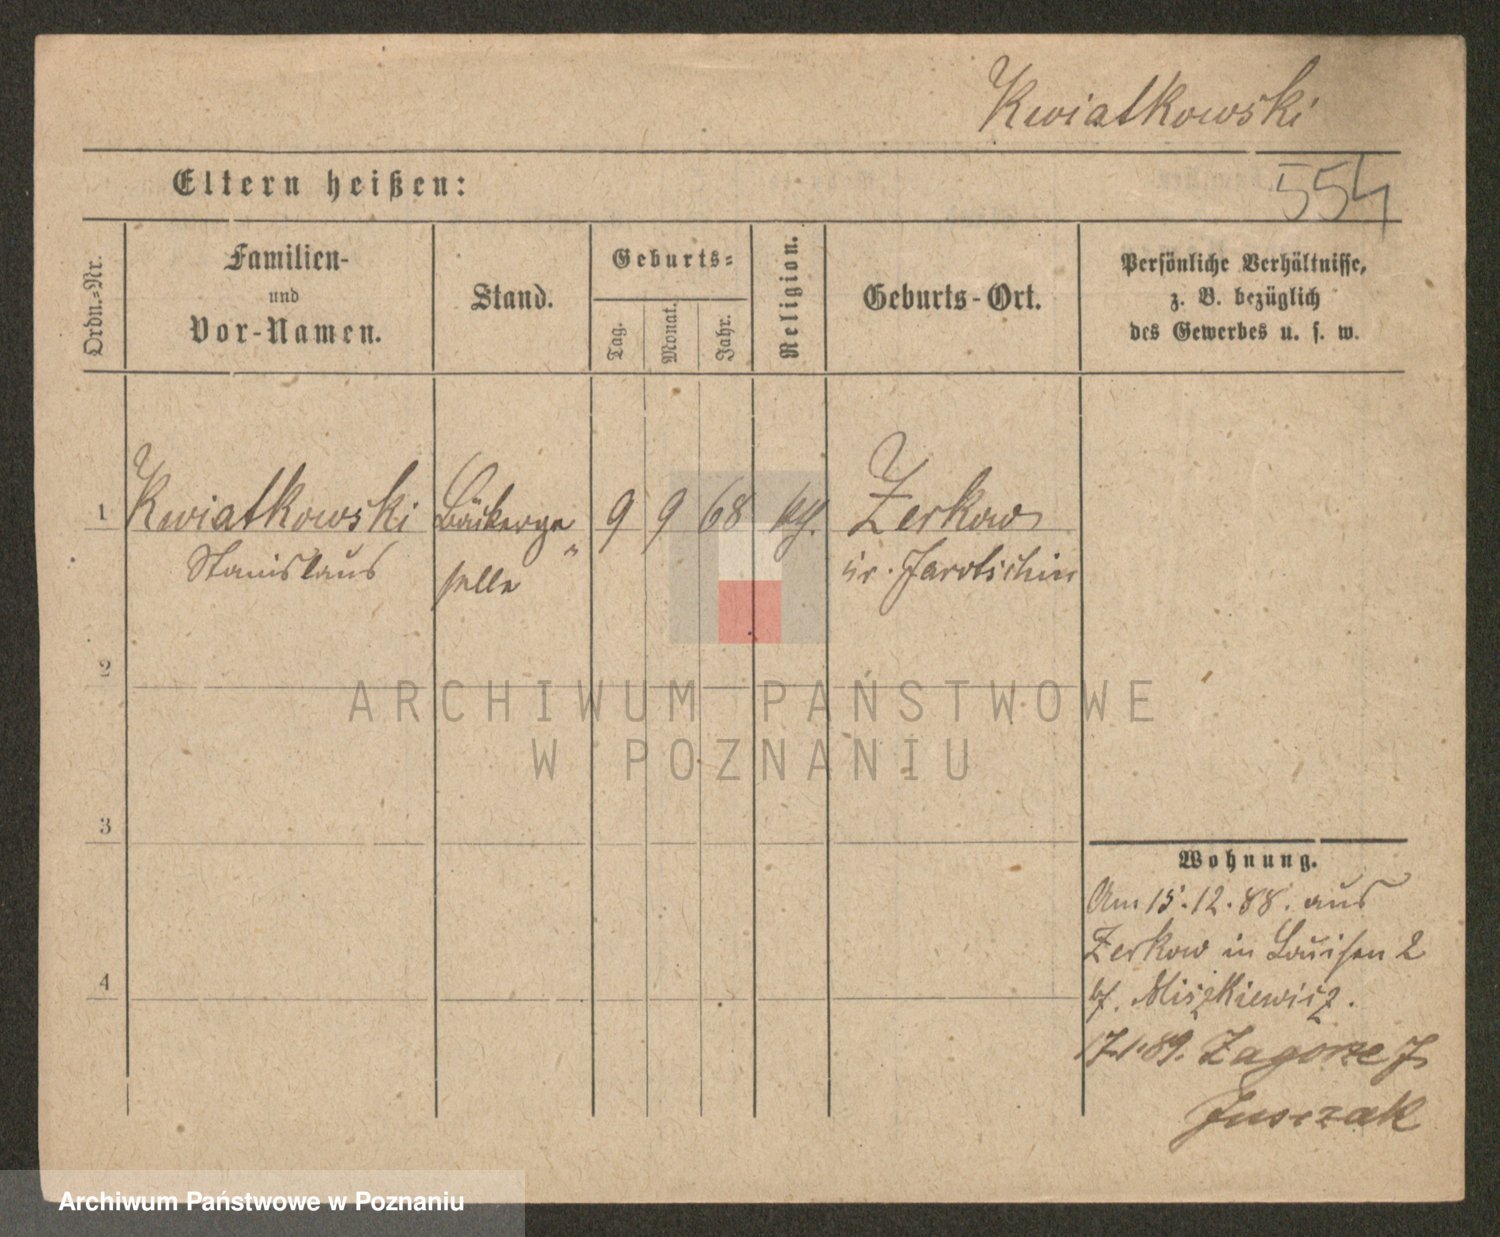 Kwiatkowski
Eltern heißen:
554
Ordn.-Nr.
Familien-
und
Vor-Namen.
Stand.
Geburts-
Tag.
Monat.
Jahr.
Religion.
Geburts-Ort.
Persönliche Verhältnisse,
z. B. bezüglich
des Gewerbes u. s. w.
1 Kwiatkowski Bäckerge 9 9 68 Zerkow
Stanislaus selle Kr. Jarotschin
2
3
4
Wohnung.
Am 15.12.88. aus
Zerkow in Louisen 2
bf. Miszkiewicz.
17.1.89. Zagorze 7
Jusczak
ARCHIWUM PAŃSTWOWE
W POZNANIU
Archiwum Państwowe w Poznaniu